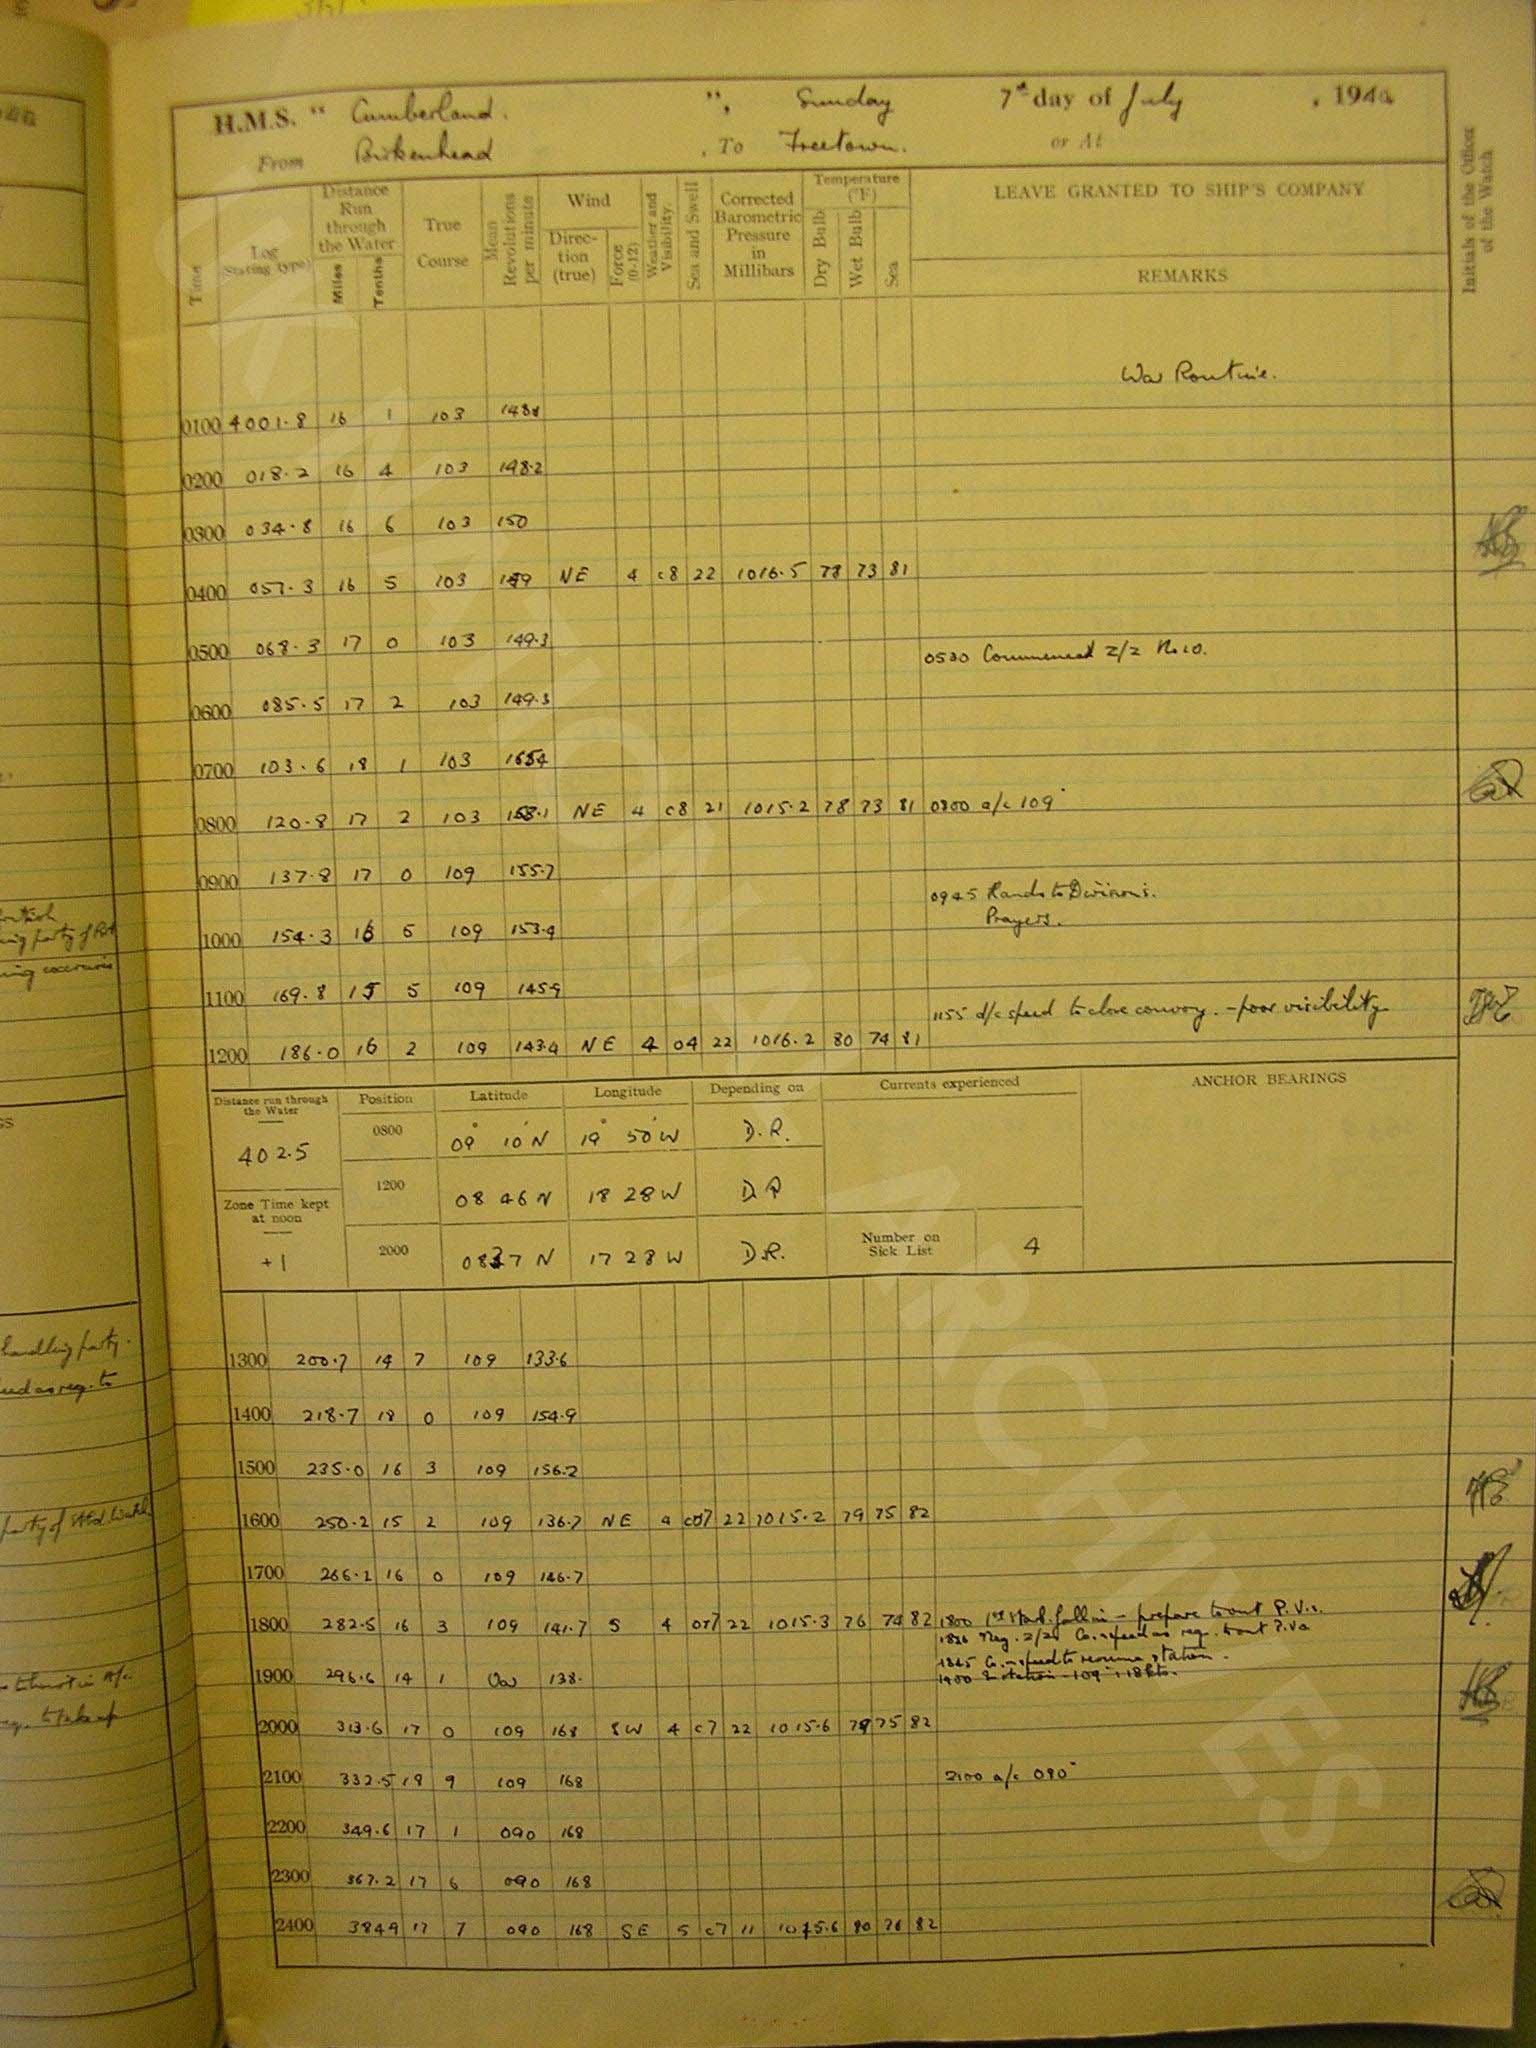 H.M.S. " Cumberland. ", Sunday 7th day of July, 1940
From Birkenhead, To Freetown. or At
Time
Log Stating type)
Distance Run through the Water
Miles
Tenths
True Course
Mean Revolutions per minute
Wind
Direction (true)
Force (0-12)
Weather and Visibility.
Sea and Swell
Corrected Barometric Pressure in Millibars
Temperature (°F)
Dry Bulb
Wet Bulb
Sea
LEAVE GRANTED TO SHIP'S COMPANY
REMARKS
Initials of the Officer of the Watch
War Routine.
0100 4001.8 16 1 103
0200 018.2 16 4 103 148.2
0300 034.8 16 6 103 150
0400 057.3 16 5 103 149 NE 4 c8 22 1016.5 78 73 81
0500 068.3 17 0 103 149.3
0530 Commenced Z/Z No 10.
0600 085.5 17 2 103 149.3
0700 103.6 18 1 103
0800 120.8 17 2 103 NE 4 c8 21 1015.2 78 73 81 0800 a/c 109°
0900 137.8 17 0 109 155.7
0945 Hands to Divisions.
Prayers.
1000 154.3 16 5 109 153.4
1100 169.8 15 5 109 145.9
1155 speed to close convoy. - poor visibility
1200 186.0 16 2 109 143.4 NE 4 04 22 1016.2 80 74 81
Distance run through the Water
402.5
Zone Time kept at noon
+1
Position Latitude Longitude Depending on
0800 09° 10' N 19° 50' W D.R.
1200 08 46 N 18 28 W D R
2000 0837 N 17 28 W D.R.
Currents experienced
Number on Sick List 4
ANCHOR BEARINGS
1300 200.7 14 7 109 133.6
1400 218.7 18 0 109 154.9
1500 235.0 16 3 109 156.2
1600 250.2 15 2 109 136.7 NE 4 22 1015.2 79 75 82
1700 266.2 16 0 109 146.7
1800 282.5 16 3 109 141.7 S 4 22 1015.3 76 74 82 1800 1st Starb. fall in - prepare to out P.V.s.
Co. & speed as req. to out P.Vs
1845 Co. & speed to resume station.
1900 296.6 14 1 Var 138. 1900 In station - 109° 18 kts.
2000 313.6 17 0 109 168 SW 4 c7 22 1015.6 79 75 82
2100 332.5 18 9 109 168 2100 a/c 090°
2200 349.6 17 1 090 168
2300 367.2 17 6 090 168
2400 384.9 17 7 090 168 SE 5 c7 11 1015.6 80 76 82
handling party.
UK NATIONAL ARCHIVES